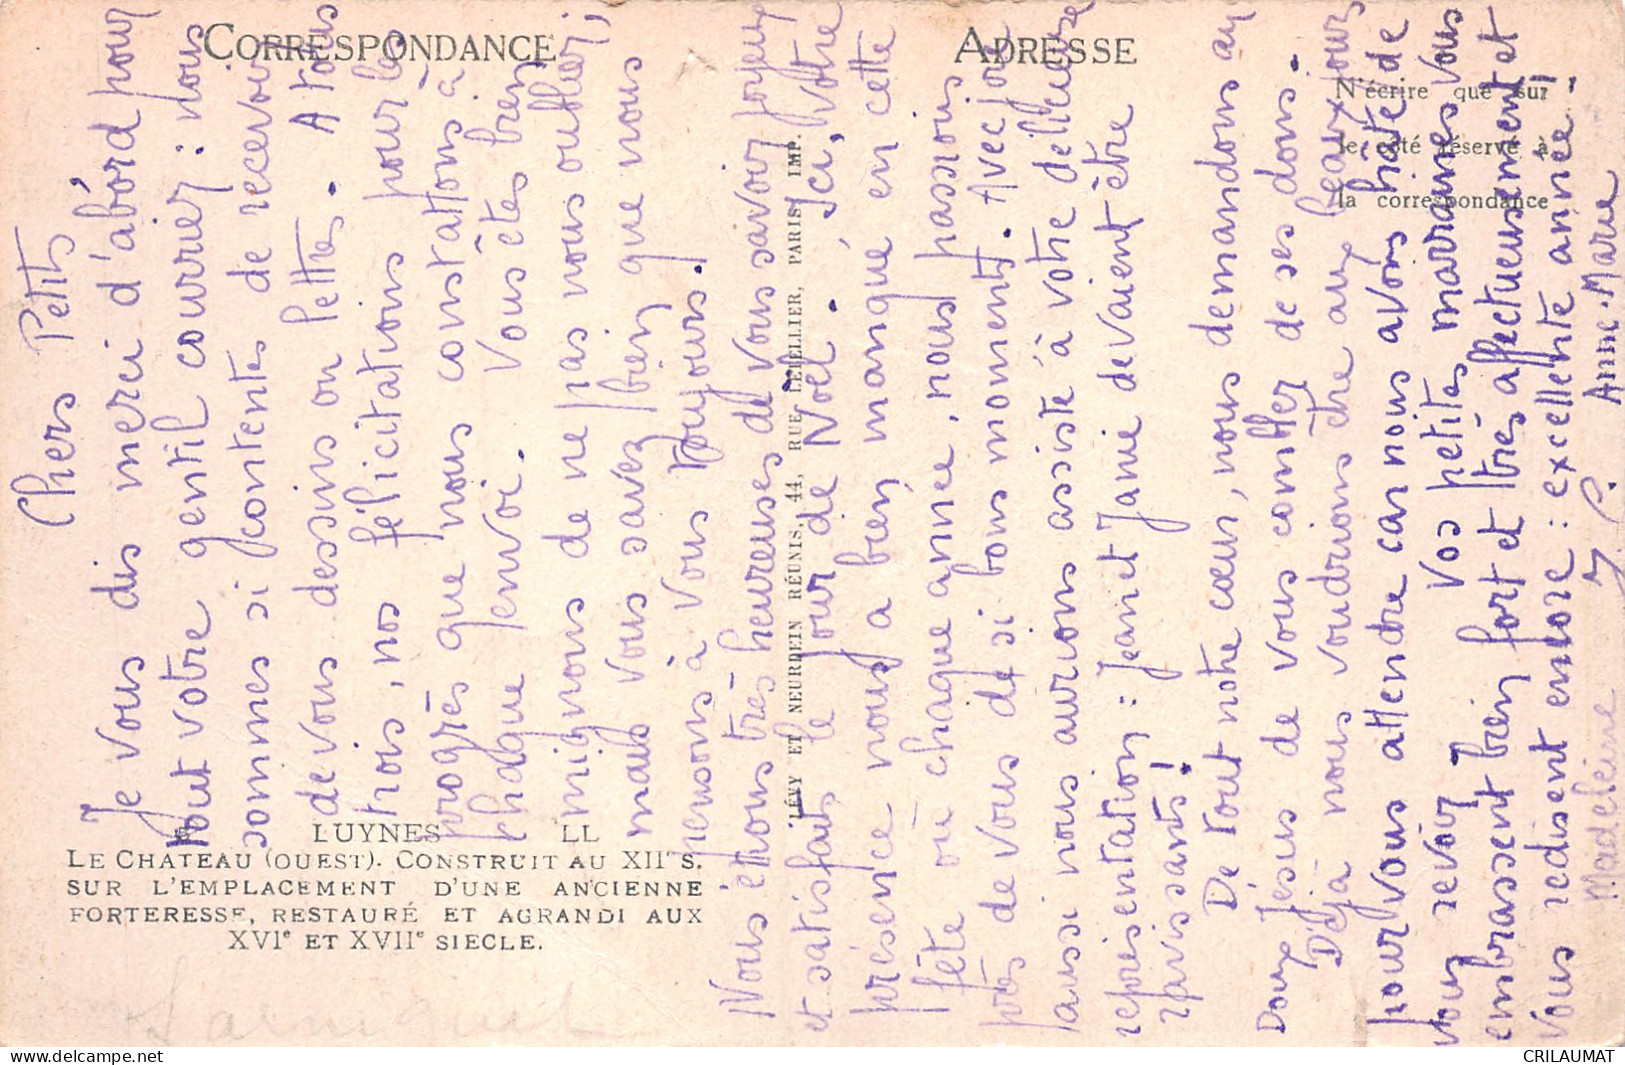 CORRESPONDANCE
ADRESSE
N'écrire que sur
le côté réservé à
la correspondance
LUYNES LL
LE CHATEAU (OUEST). CONSTRUIT AU XIIe S.
SUR L'EMPLACEMENT D'UNE ANCIENNE
FORTERESSE, RESTAURÉ ET AGRANDI AUX
XVIe ET XVIIe SIECLE.
LÉVY ET NEURDEIN RÉUNIS, 44, RUE LETELLIER, PARIS, IMP.
Chers Petits
Je vous dis merci d'abord pour
tout votre gentil courrier : nous
sommes si contentes de recevoir
de vous dessins ou lettres. A tous
trois, nos félicitations pour les
progrès que nous constatons à
chaque envoi. Vous êtes bien
mignons de ne pas nous oublier,
mais vous savez bien que nous
pensons à vous toujours !
Nous étions très heureuses de vous savoir joyeux
et satisfaits le jour de Noël. Ici, votre
présence nous a bien manqué en cette
fête où chaque année, nous passions
près de vous de si bons moments. Avec joie
aussi nous aurions assisté à votre délicieuse
représentation : Jean et Janie devaient être
ravissants !
De tout notre cœur, nous demandons au
Doux Jésus de vous combler de ses dons.
Déjà nous voudrions être aux beaux jours
pour vous attendre car nous avons hâte de
vous revoir. Vos petites marraines vous
embrassent bien fort et très affectueusement et
vous redisent encore : excellente année !
Madeleine Anne-Marie
CRILAUMAT